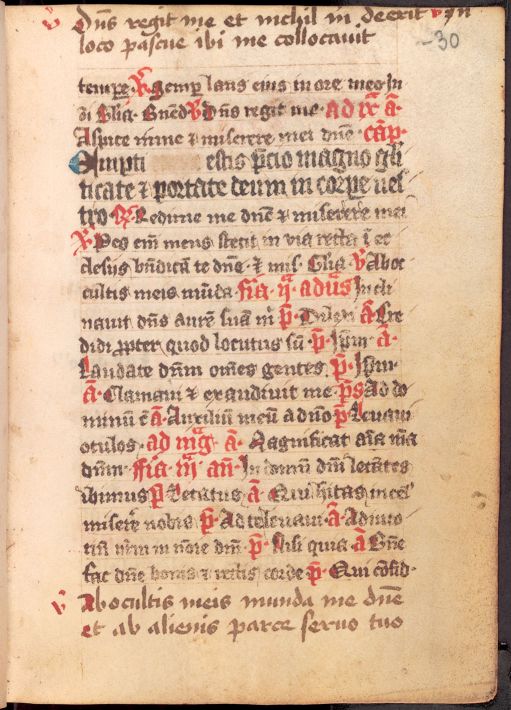 ℣ Dn̄s regit me et nichil m̄ deerit ℣ In
loco pascue ibi me collocavit
-30
tempe. ℟ Semp laus eius in ore meo In
di Gl̄ia. Bn̄ed ℣ Dn̄s regit me. ad ix ā.
Aspice in me ⁊ miserere mei dn̄e. cāp.
Empti estis p̄cio magno gl̄i
ficate ⁊ portate deum in corpe ves
tro. ℟ Redime me dn̄e ⁊ miserere mei
℟ Pes em̄ meus stetit in via recta ī ec
clesijs bn̄dicā te dn̄e. ⁊ mis. Gl̄ia ℣ Aboc
cultis meis mūda fīa. ij. ad vs̄ Incli
navit dn̄s aurē suā m̄ p̄. Dilexi ā Cre
didi ꝓpter quod locutus sū p̄. Ip̄m. ā.
Laudate dn̄m om̄es gentes. p̄. Ip̄m.
ā. Clamavi ⁊ exaudivit me. ps Ad do
minū ē ā. Auxiliū meū a dn̄o p̄ Levavi
oculos. ad mḡ. ā. Magnificat aīa m̄a
dn̄m. ffīa. iij. an̄. In domū dn̄i letātes
ibimus p̄ Letatus ā. Qui h̄itas in cel
miserē nobis p̄. Ad te levavi. ā Adiuto
riū n̄rm in nōre dn̄i. p̄. Nisi quia ā Bn̄e
fac dn̄e bonis ⁊ rectis corde p̄. Qui cōfid.
℣ Ab ocultis meis munda me dn̄e
et ab alienis parce servo tuo